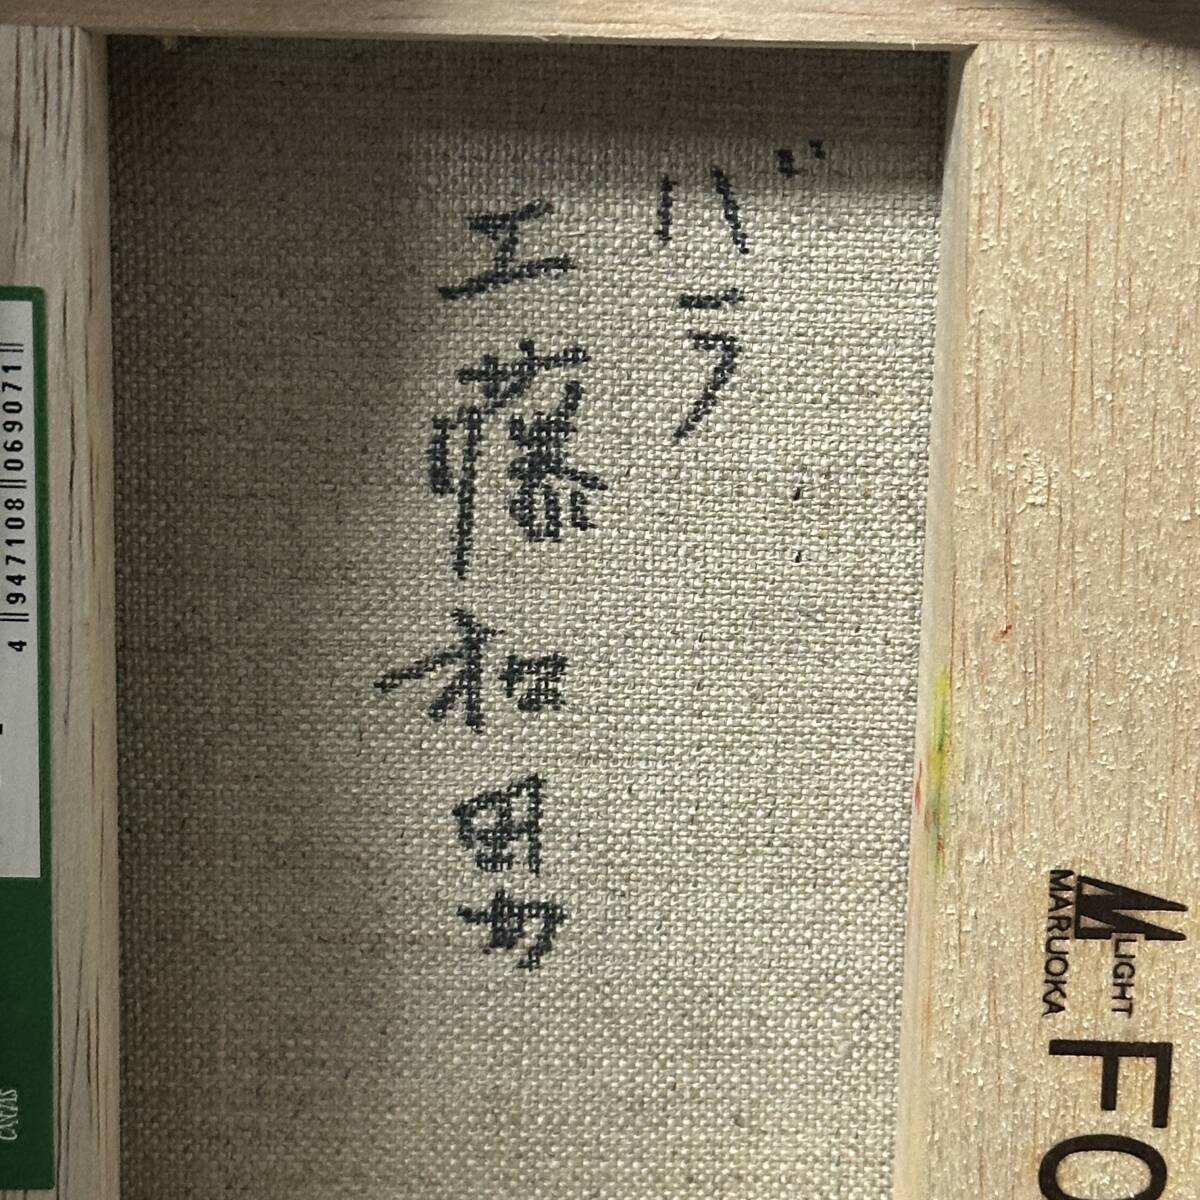 バラ
工藤和男
4 947108 069071
M LIGHT
MARUOKA
F0
CANVAS